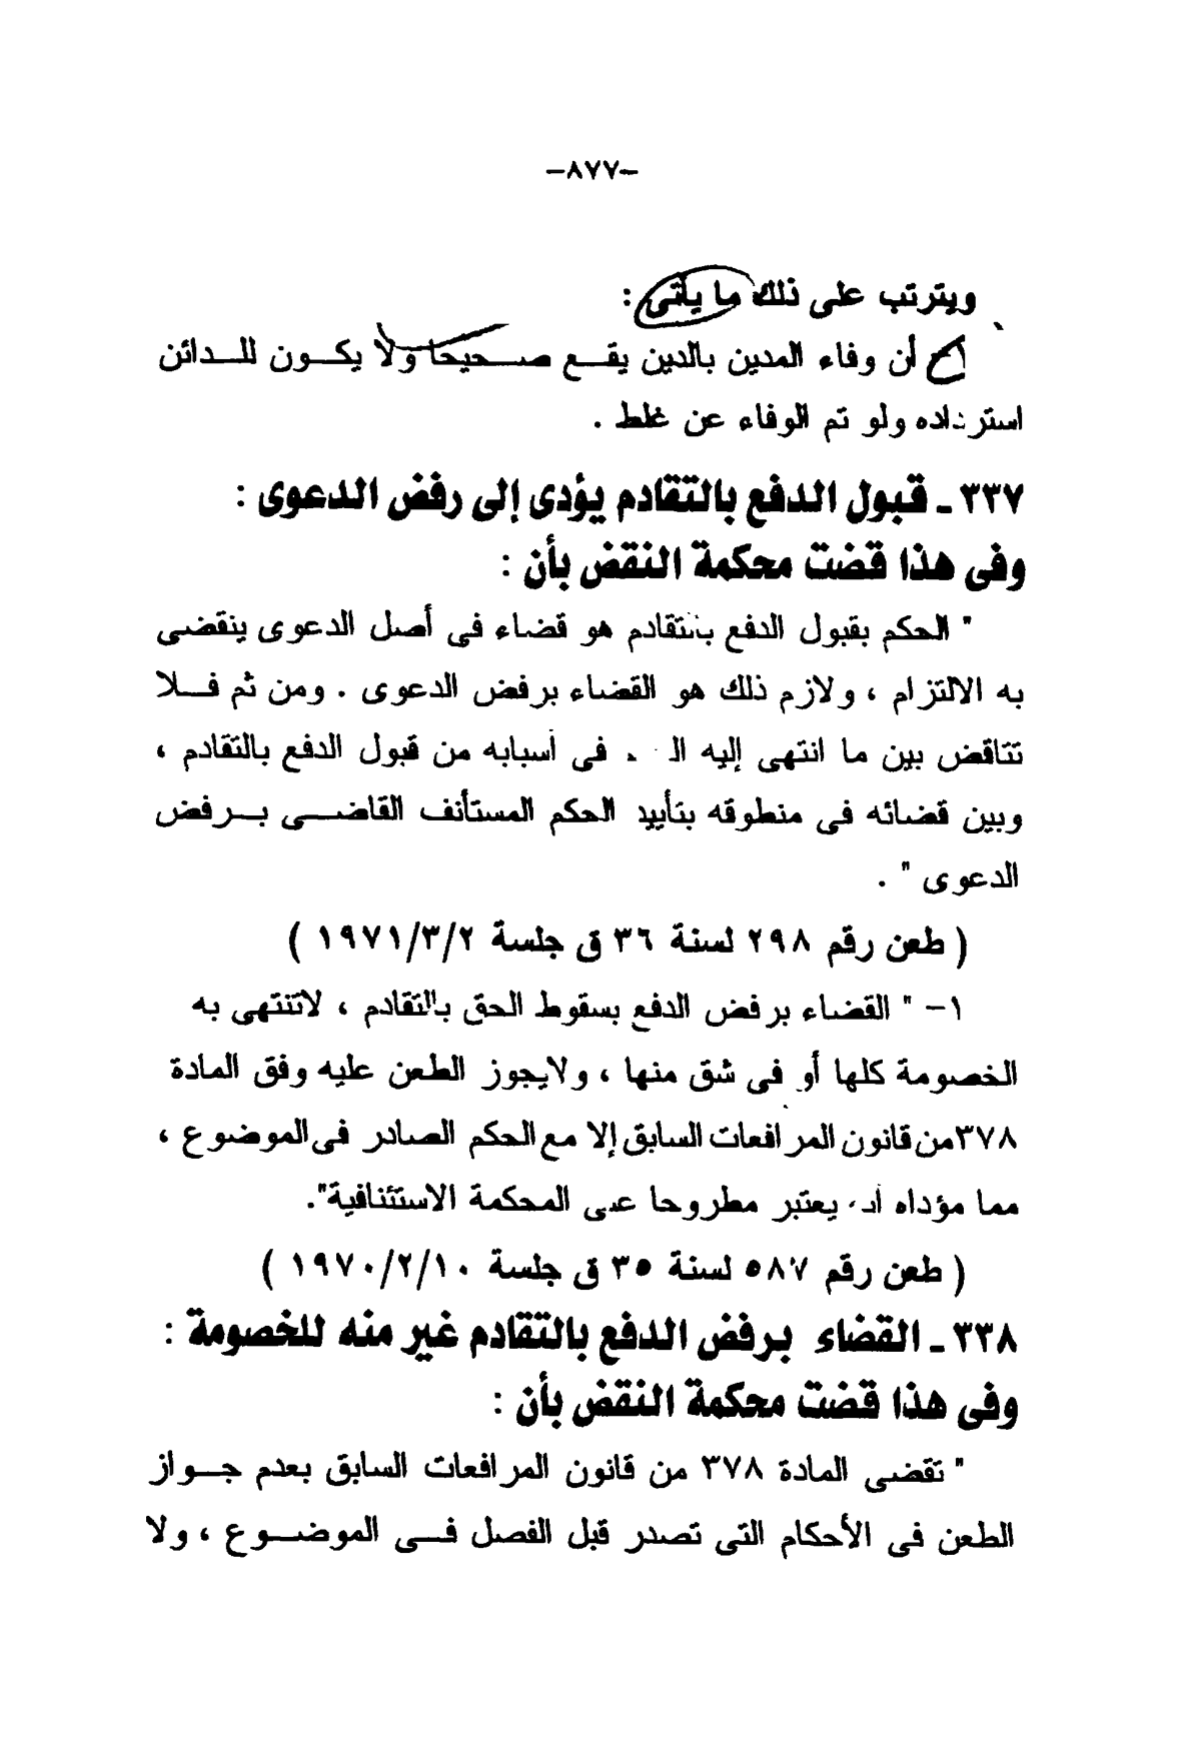 -٨٧٧-
ويترتب على ذلك ما يأتى :
أن وفاء المدين بالدين يقع صحيحا ولا يكون للدائن
استرداده ولو تم الوفاء عن غلط .
٣٣٧ ـ قبول الدفع بالتقادم يؤدى إلى رفض الدعوى :
وفى هذا قضت محكمة النقض بأن :
" الحكم بقبول الدفع بالتقادم هو قضاء فى أصل الدعوى ينقضى
به الالتزام ، ولازم ذلك هو القضاء برفض الدعوى . ومن ثم فلا
تناقض بين ما انتهى إليه فى أسبابه من قبول الدفع بالتقادم ،
وبين قضائه فى منطوقه بتأييد الحكم المستأنف القاضى برفض
الدعوى " .
( طعن رقم ٢٩٨ لسنة ٣٦ ق جلسة ١٩٧١/٣/٢ )
١- " القضاء برفض الدفع بسقوط الحق بالتقادم ، لاتنتهى به
الخصومة كلها أو فى شق منها ، ولايجوز الطعن عليه وفق المادة
٣٧٨من قانون المرافعات السابق إلا مع الحكم الصادر فى الموضوع ،
مما مؤداه يعتبر مطروحا على المحكمة الاستئنافية".
( طعن رقم ٥٨٧ لسنة ٣٥ ق جلسة ١٩٧٠/٢/١٠ )
٣٣٨ ـ القضاء برفض الدفع بالتقادم غير منه للخصومة :
وفى هذا قضت محكمة النقض بأن :
" تقضى المادة ٣٧٨ من قانون المرافعات السابق بعدم جواز
الطعن فى الأحكام التى تصدر قبل الفصل فى الموضوع ، ولا